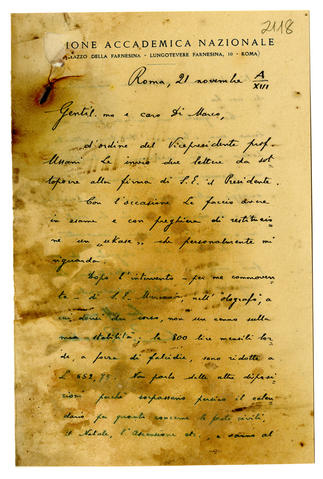 2118
IONE ACCADEMICA NAZIONALE
PALAZZO DELLA FARNESINA - LUNGOTEVERE FARNESINA, 10 - ROMA)
Roma, 21 novembre A XIII
Gentil.mo e caro Di Marco,
d'ordine del Vicepresidente prof.
Ussani Le invio due lettere da sot-
toporre alla firma di S.E. il Presidente.
Con l'occasione Le faccio avere
in esame e con preghiera di restituzio
ne un "ukase" che personalmente mi
riguarda.
Dopo l'intervento - per me commoven
te - di S.E. nell' olografo, a
cui dovei dar corso, non un cenno sulla
mia stabilità; le 800 lire mensili lor
de, a forza di falcidie, sono ridotte a
L. 652,75. Non parlo delle altre disposi
zioni perché sorpassano persino il calen
dario per quanto concerne le feste civili,
il Natale, l'Ascensione etc., e vanno al